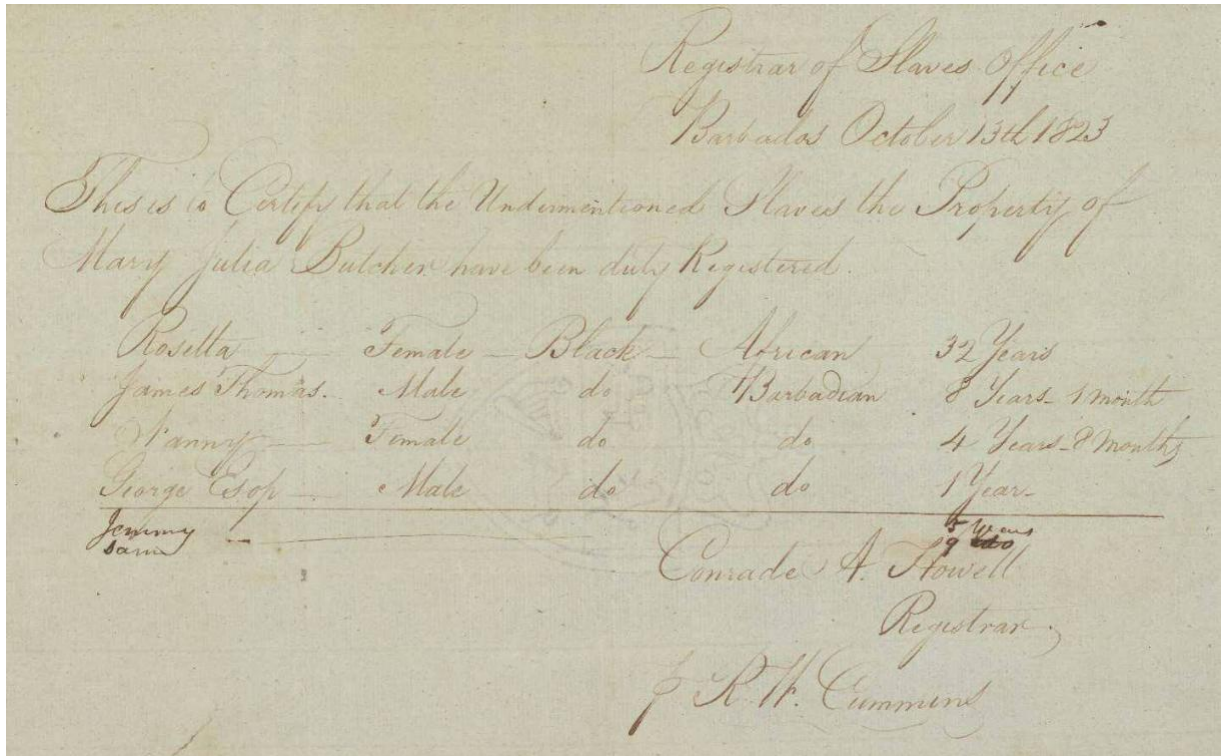 Registrar of Slaves Office
Barbados October 13th 1823
This is to Certify that the Undermentioned Slaves the Property of
Mary Julia Butcher have been duly Registered.
Rosetta — Female — Black — African 32 Years
James Thomas. Male do Barbadian 8 Years - 1 month
Nanny — Female do do 4 Years - 8 Months
George Esop — Male do do 1 Year -
Jemmy — 5 Years
9 do
Conrade A. Howell
Registrar
R. W. Cummins